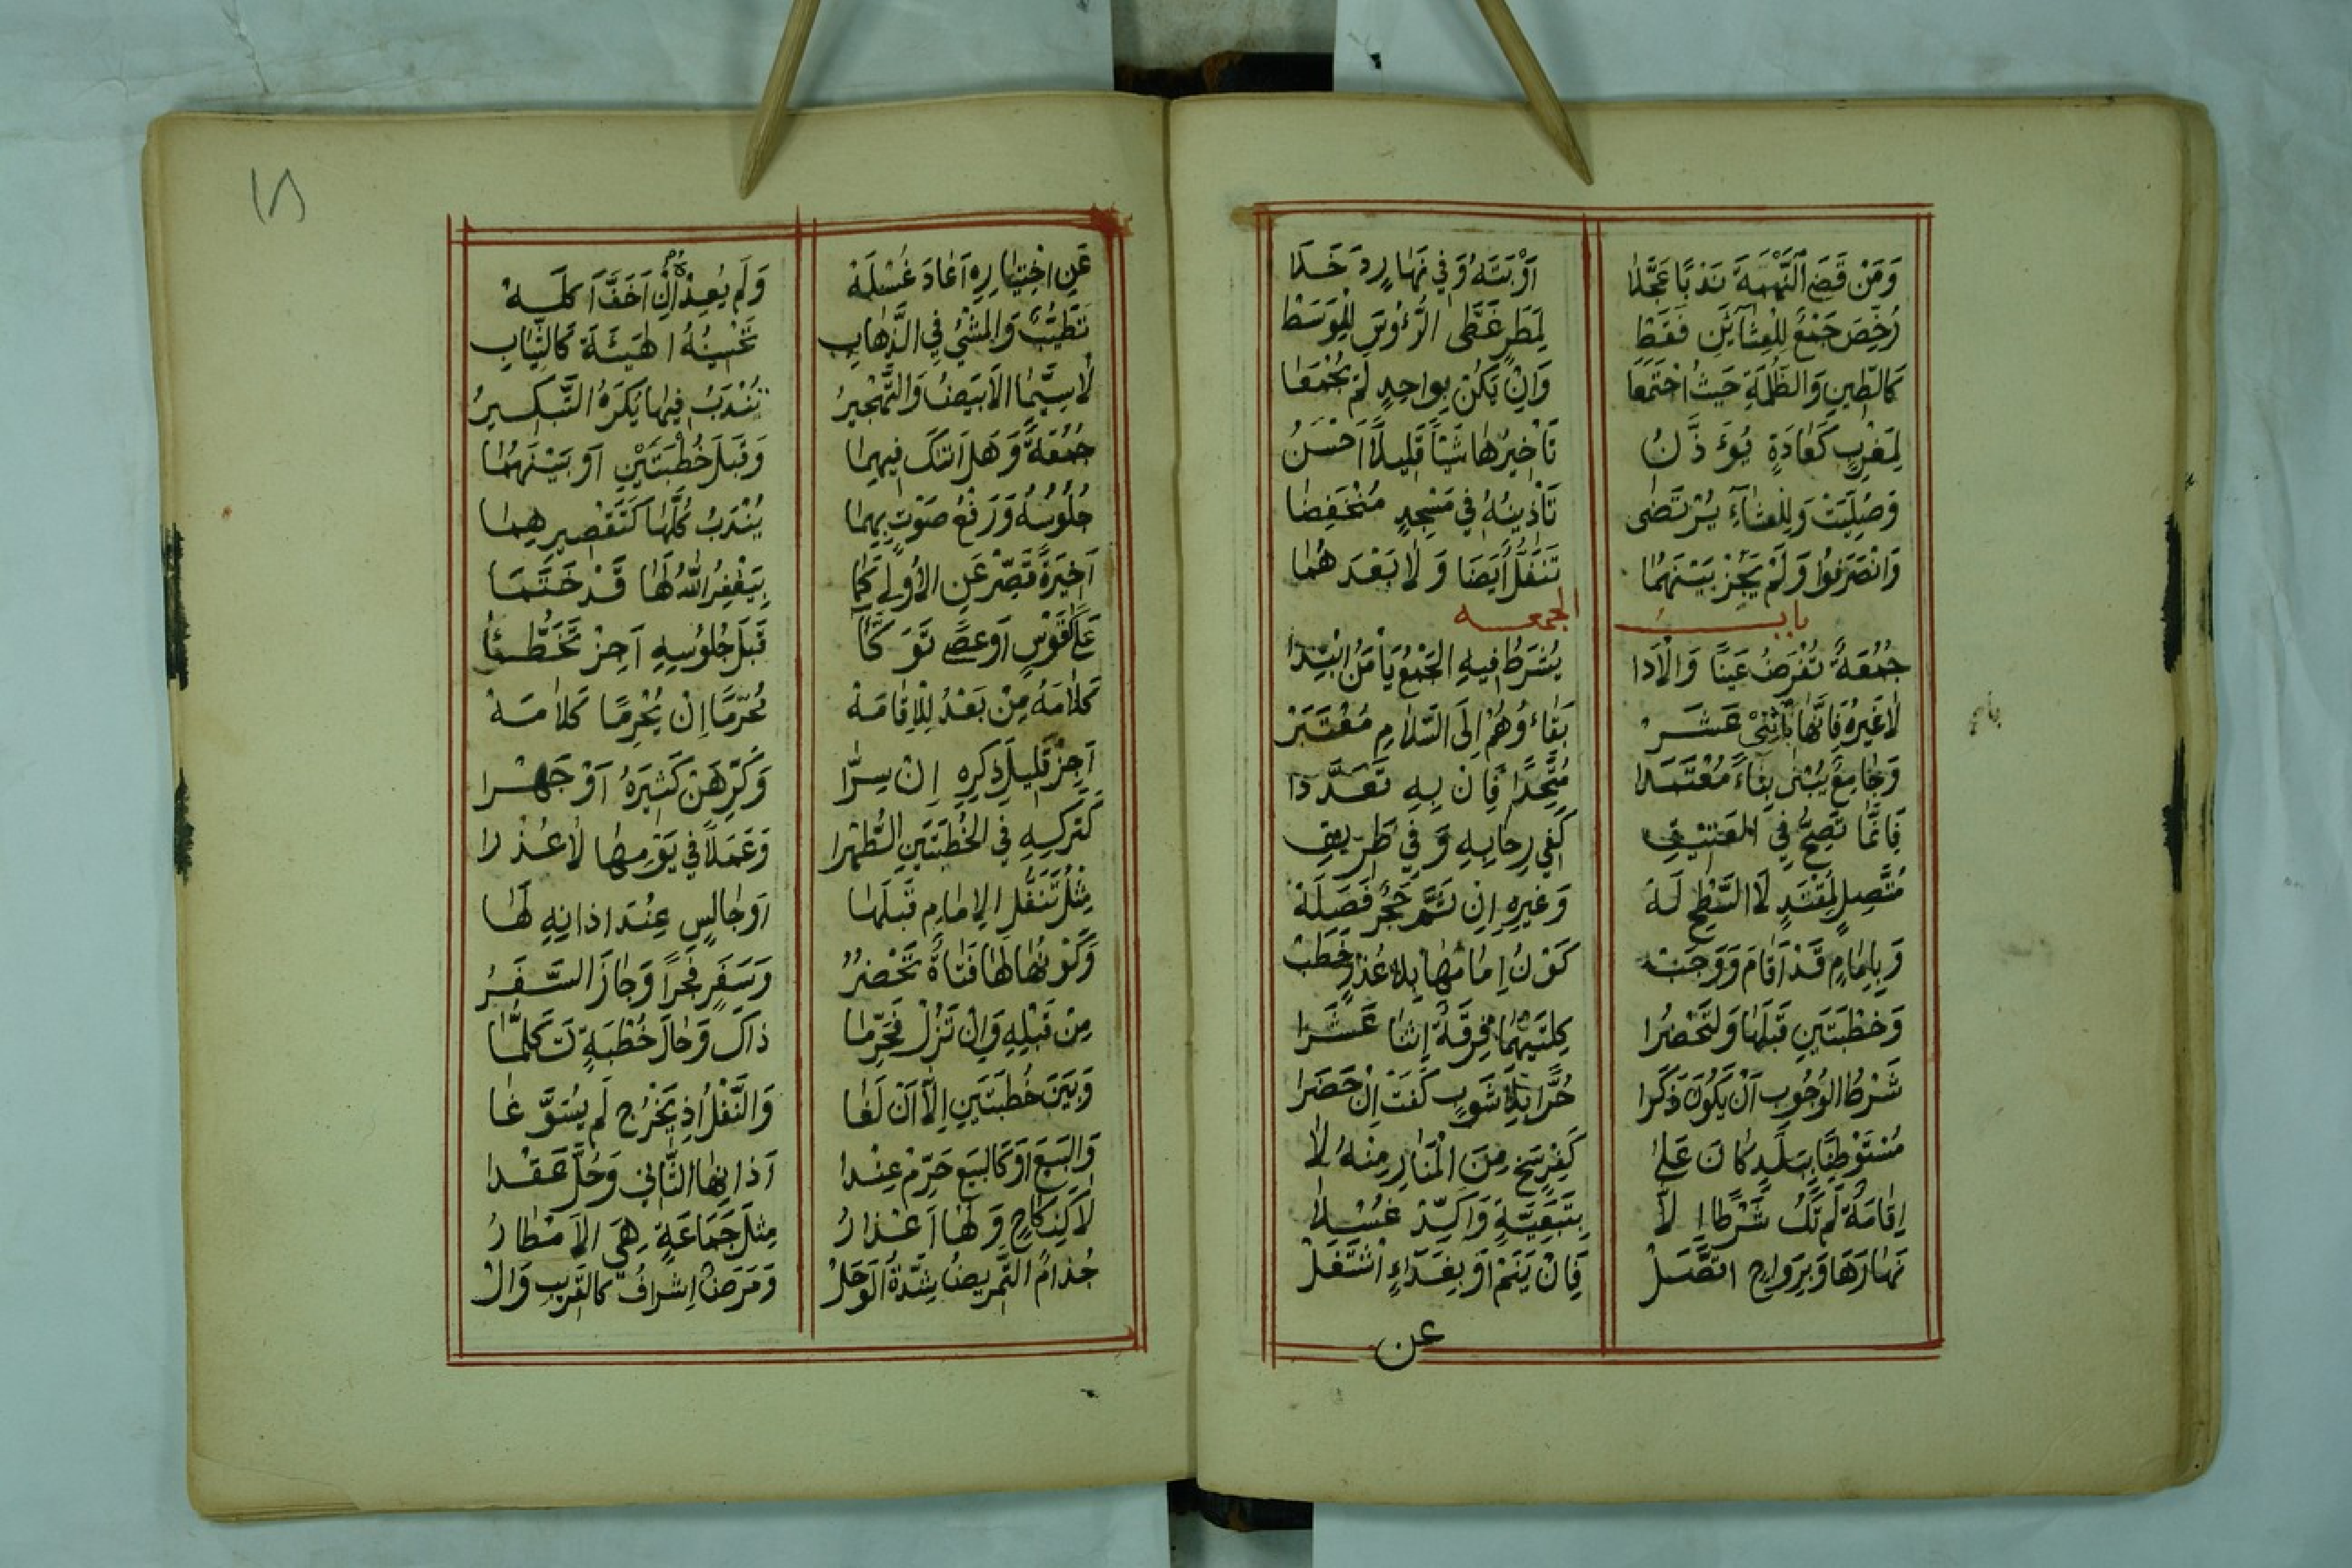 وَمَنْ قَضَى النَّهْمَةَ نَدْبًا عَجَّلَا اَوْ بَتَّهُ وَفِي نَهَارٍ دَخَلَا
رُخِّصَ جَمْعٌ لِلْعِشَائَيْنِ فَقَطْ لِمَطَرٍ غَطَّى الرُّؤُوسَ لِلْوَسَطْ
كَالطِّينِ وَالظُّلْمَةِ حَيْثُ اجْتَمَعَا وَاِنْ يَكُنْ بِوَاحِدٍ لَمْ يُجْمَعَا
لِمَغْرِبٍ كَعَادَةٍ يُؤَذَّنُ تَأْخِيرُهَا شَيْأً قَلِيلًا اَحْسَنُ
وَصُلِّيَتْ وَلِلْعِشَاءِ يُرْتَضَى تَأْذِينُهُ فِي مَسْجِدٍ مُنْخَفِضَا
وَانْصَرَفُوا وَلَمْ يَجُزْ بَيْنَهُمَا تَنَفُّلٌ اَيْضًا وَلَا بَعْدَهُمَا
باب الجمعه
جُمُعَةٌ تُفْرَضُ عَيْنًا وَالْاَدَا يُشْرَطُ فِيهِ الْجَمْعُ يَا مَنِ ابْتَدَا
لَا غَيْرُهُ فَاِنَّهَا بِاثْنَيْ عَشَرْ بَقَاءُ وُهُمْ اِلَى السَّلَامِ مُعْتَبَرْ
وَجَامِعٌ يُبْنَى بِنَاءً مُعْتَمَدَا مُتَّحِدًا فَاِنْ بِهِ تَعَدَّدَا
فَاِنَّمَا تَصِحُّ فِي الْعَتِيقِ كَفِي رِحَابِهِ وَفِي طَرِيقِ
مُتَّصِلٍ لِمُقْتَدٍ لَا السَّطْحِ لَهْ وَغَيْرِهِ اِنْ ثَمَّ حَجْرٌ فَصَلَهْ
وَبِاِمَامٍ قَدْ اَقَامَ وَوَجَبْ كَوْنُ اِمَامِهَا بِلَا عُذْرٍ خَطَبْ
وَخُطْبَتَيْنِ قَبْلَهَا وَلْتَحْضُرَا كِلْتَيْهِمَا فِرْقَةٌ اِثْنَا عَشَرَا
شَرْطُ الْوُجُوبِ اَنْ يَكُونَ ذَكَرَا حُرًّا بِلَا شَوْبٍ كَفَتْ اِنْ حَضَرَا
مُسْتَوْطِنًا بِبَلَدٍ كَانَ عَلَى كَفَرْسَخٍ مِنَ الْمَنَارِ مِنْهُ لَا
اِقَامَةٌ لَمْ تَكُ شَرْطًا اِلَّا بِتَبَعِيَّةٍ وَاَكِّدْ غُسْلَا
نَهَارَهَا وَبِرَوَاحٍ اتَّصَلْ فَاِنْ يَنَمْ اَوْ بِغَدَاءٍ اشْتَغَلْ
عن
عَنِ اخْتِيَارِهِ اَعَادَ غُسْلَهْ وَلَمْ يُعِدْ اِنْ اَخَفَّ اَكْلَهْ
تَطَيُّبٌ وَالْمَشْيُ فِي الذَّهَابِ تَحْسِينُهُ الْهَيْئَةَ كَالثِّيَابِ
لَا سِيَّمَا الْاَبْيَضُ وَالتَّهْجِيرُ تُنْدَبُ فِيهَا يُكْرَهُ التَّبْكِيرُ
جُمُعَةٌ وَهَلْ اَتَتْكَ فِيهِمَا وَقَبْلَ خُطْبَتَيْنِ اَوْ بَيْنَهُمَا
جُلُوسُهُ وَرَفْعُ صَوْتٍ بِهِمَا يُنْدَبُ كُلُّهَا كَتَقْصِيرِهِمَا
اَخِيرَةً قَصِّرْ عَنِ الْاُولَى كَمَا بِيَغْفِرُ اللّٰهُ لَهَا قَدْ خَتَمَا
عَلَى كَقَوْسٍ اَوْ عَصًى تَوَكَّأَ قَبْلَ جُلُوسِهِ اَجِزْ تَخَطِّئًا
كَلَامَهُ مِنْ بَعْدُ لِلْاِقَامَهْ مُحَرِّمًا اِنْ يُحْرِمَا كَلَامَهْ
اَجِزْ قَلِيلَ ذِكْرِهِ اِنْ سِرَّا وَكَرِّهَنْ كَثِيرَهُ اَوْ جَهْرَا
كَتَرْكِهِ فِي الْخُطْبَتَيْنِ الطُّهْرَا وَعَمَلًا فِي يَوْمِهَا لَا عُذْرَا
مِثْلُ تَنَفُّلِ الْاِمَامِ قَبْلَهَا اَوْ جَالِسٍ عِنْدَ اذَانِهِ لَهَا
وَكَوْنُهَا لَهَا فَتَاةٌ تَحْضُرُ وَسَفَرٍ فَجْرًا وَجَازَ السَّفَرُ
مِنْ قَبْلِهِ وَاِنْ تَزُلْ فَحَرِّمَا ذَاكَ وَحَالَ خُطْبَةٍ تَكَلُّمَا
وَبَيْنَ خُطْبَتَيْنِ اِلَّا اَنْ لَغَا وَالنَّفْلُ اِذْ يَخْرُجُ لَمْ يُسَوَّغَا
وَالْبَيْعَ اَوْ كَالْبَيْعِ حَرِّمْ عِنْدَا اَذَانِهَا الثَّانِي وَحُلَّ عَقْدَا
لَا كَنِكَاحٍ وَلَهَا اَعْذَارُ مِثْلَ جَمَاعَةٍ هِيَ الْاَمْطَارُ
جُذَامٌ التَّمْرِيضُ شِدَّةُ الْوَحَلْ وَمَرَضٌ اِشْرَافُ كَالْقَرِيبِ وَالْ